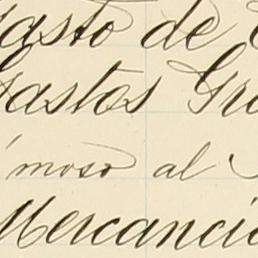 Gasto de
Gastos Gra
moso al
Mercancia